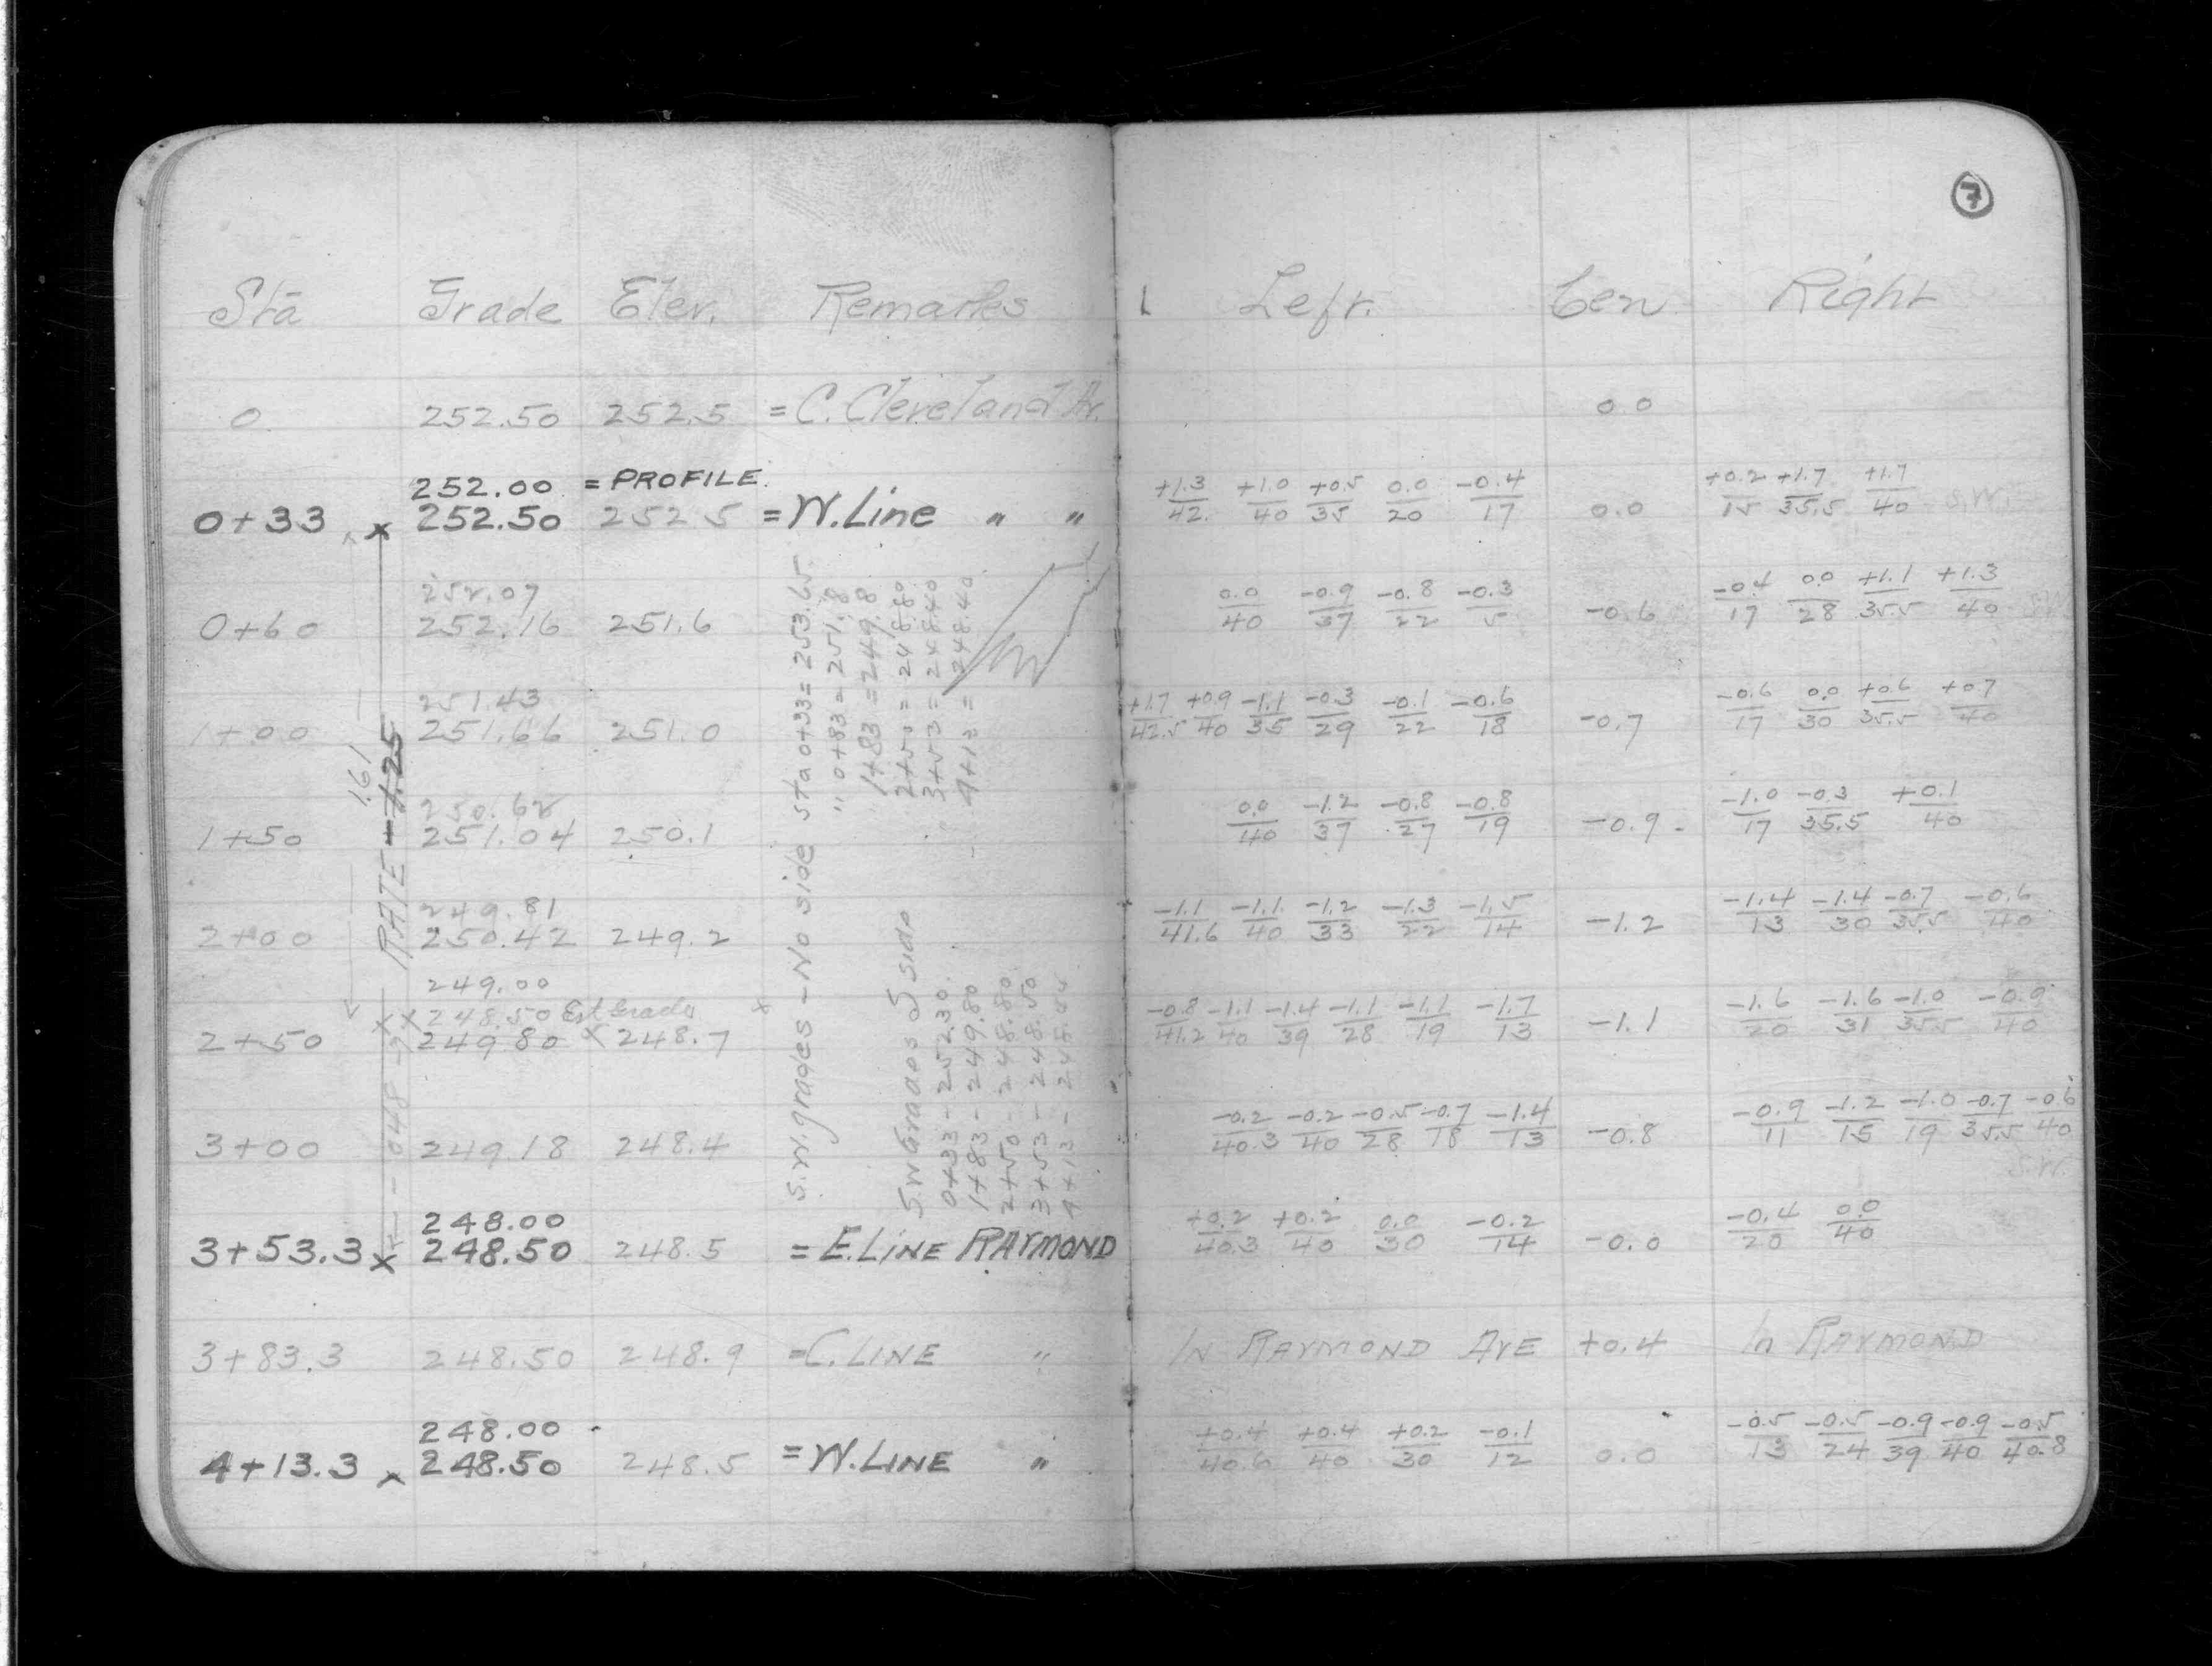 7
Sta Grade Elev. Remarks
Left. Cen Right
0 252.50 252.5 = C. Cleveland Av.
0.0
252.00 = PROFILE.
0+33 x 252.50 252.5 = W. Line " "
+1.3/42. +1.0/40 +0.5/35 0.0/20 -0.4/17 0.0 +0.2/15 +1.7/35.5 +1.7/40 S.W.
252.07
0+60 252.16 251.6
0.0/40 -0.9/37 -0.8/22 -0.3/5 -0.6 -0.4/17 0.0/28 +1.1/35.5 +1.3/40
251.43
1+00 251.66 251.0
+1.7/42.5 +0.9/40 -1.1/35 -0.3/29 -0.1/22 -0.6/18 -0.7 -0.6/17 0.0/30 +0.6/35.5 +0.7/40
250.62
1+50 251.04 250.1
0.0/40 -1.2/37 -0.8/27 -0.8/19 -0.9 -1.0/17 -0.3/35.5 +0.1/40
249.81
2+00 250.42 249.2
-1.1/41.6 -1.1/40 -1.2/33 -1.3/22 -1.5/14 -1.2 -1.4/13 -1.4/30 -0.7/35.5 -0.6/40
249.00
x 248.50 Est Grade
2+50 249.80 x 248.7
-0.8/41.2 -1.1/40 -1.4/39 -1.1/28 -1.1/19 -1.7/13 -1.1 -1.6/20 -1.6/31 -1.0/35.5 -0.9/40
3+00 249.18 248.4
-0.2/40.3 -0.2/40 -0.5/28 -0.7/18 -1.4/13 -0.8 -0.9/11 -1.2/15 -1.0/19 -0.7/35.5 -0.6/40
S.W.
248.00
3+53.3 x 248.50 248.5 = E. LINE RAYMOND
+0.2/40.3 +0.2/40 0.0/30 -0.2/14 -0.0 -0.4/20 0.0/40
3+83.3 248.50 248.9 = C. LINE "
IN RAYMOND AVE +0.4 In RAYMOND
248.00
4+13.3 x 248.50 248.5 = W. LINE "
+0.4/40.6 +0.4/40 +0.2/30 -0.1/12 0.0 -0.5/13 -0.5/24 -0.9/39 -0.9/40 -0.5/40.8
1.61
RATE - 1.25
S.W. grades - No side Sta 0+33 = 253.65
" 0+83 = 251.8
1+83 = 249.8
2+50 = 248.80
3+53 = 248.40
4+13 = 248.40
S.W Grades S side
0+33 - 252.30
1+83 - 249.80
2+50 - 248.80
3+53 - 248.50